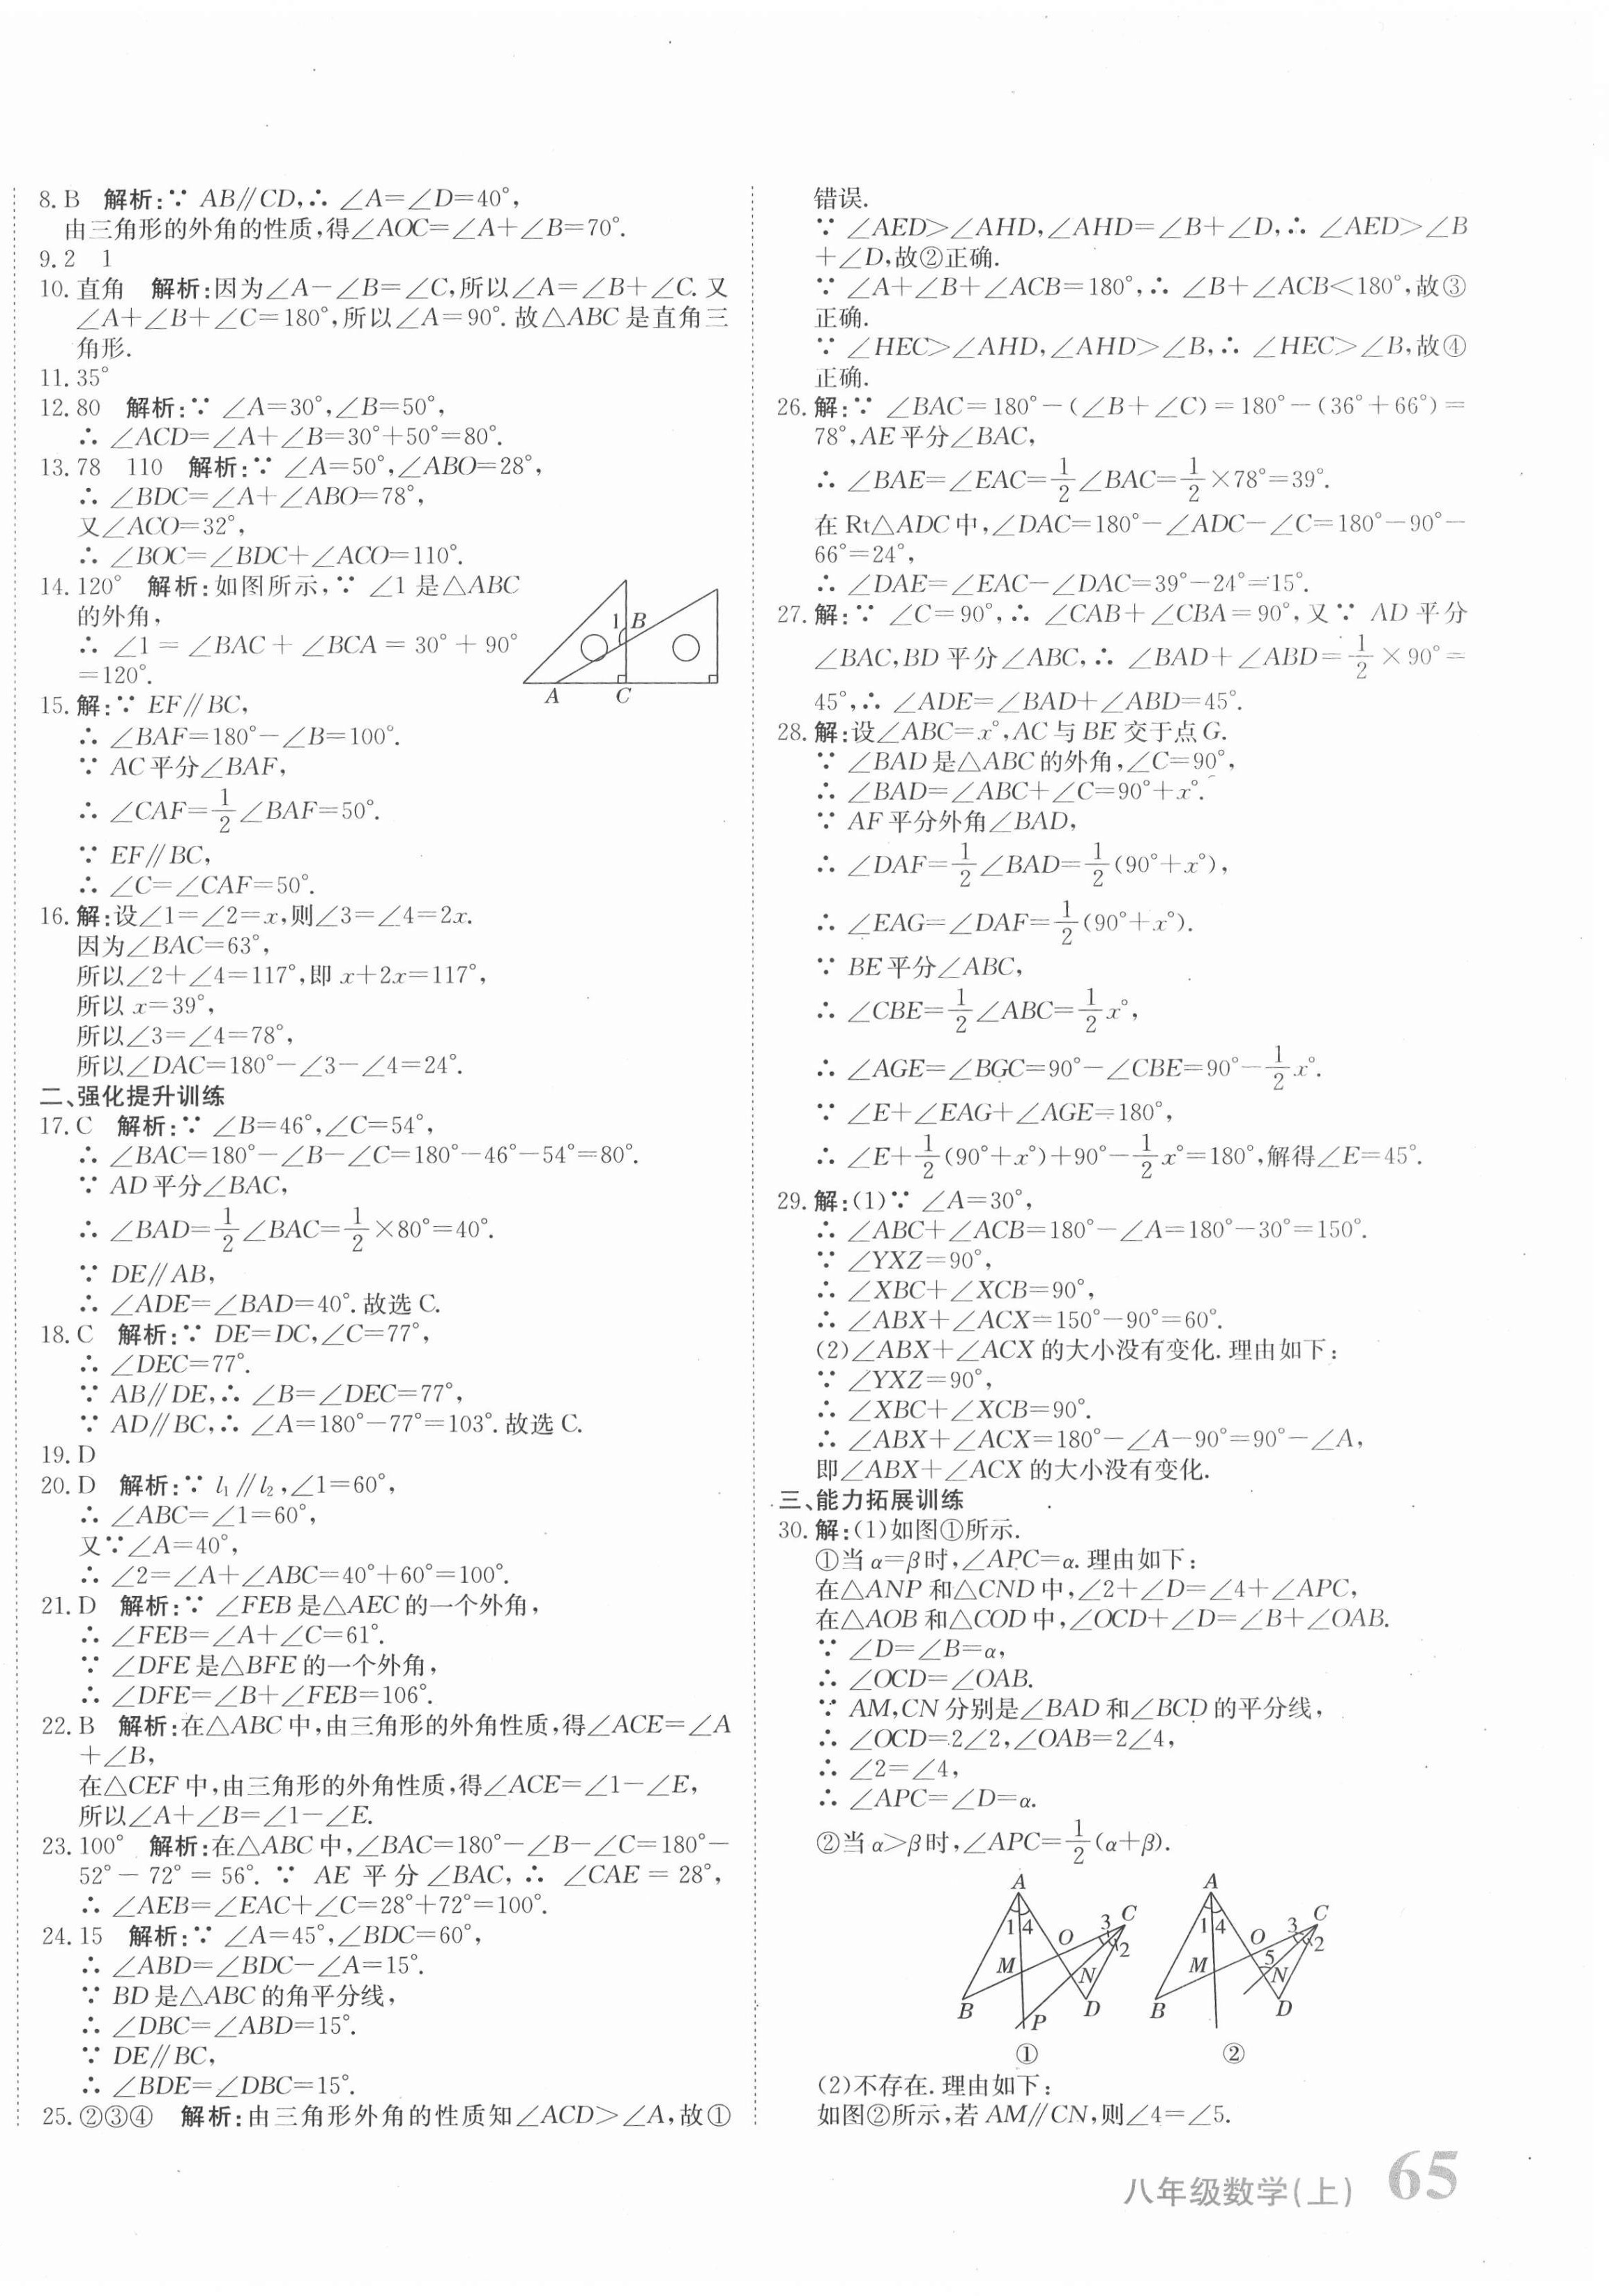 8. B　解析:∵ AB∥CD,∴ ∠A=∠D=40°,
由三角形的外角的性质,得∠AOC=∠A+∠B=70°.
9. 2　1
10. 直角　解析:因为∠A-∠B=∠C,所以∠A=∠B+∠C. 又
∠A+∠B+∠C=180°,所以∠A=90°. 故△ABC 是直角三
角形.
11. 35°
12. 80　解析:∵ ∠A=30°,∠B=50°,
∴ ∠ACD=∠A+∠B=30°+50°=80°.
13. 78　110　解析:∵ ∠A=50°,∠ABO=28°,
∴ ∠BDC=∠A+∠ABO=78°,
又∠ACO=32°,
∴ ∠BOC=∠BDC+∠ACO=110°.
14. 120°　解析:如图所示,∵ ∠1 是△ABC
的外角,
∴ ∠1=∠BAC+∠BCA=30°+90°
=120°.
1 B
A C
15. 解:∵ EF∥BC,
∴ ∠BAF=180°-∠B=100°.
∵ AC 平分∠BAF,
∴ ∠CAF=1/2∠BAF=50°.
∵ EF∥BC,
∴ ∠C=∠CAF=50°.
16. 解:设∠1=∠2=x,则∠3=∠4=2x.
因为∠BAC=63°,
所以∠2+∠4=117°,即 x+2x=117°,
所以 x=39°,
所以∠3=∠4=78°,
所以∠DAC=180°-∠3-∠4=24°.
二、强化提升训练
17. C　解析:∵ ∠B=46°,∠C=54°,
∴ ∠BAC=180°-∠B-∠C=180°-46°-54°=80°.
∵ AD 平分∠BAC,
∴ ∠BAD=1/2∠BAC=1/2×80°=40°.
∵ DE∥AB,
∴ ∠ADE=∠BAD=40°. 故选 C.
18. C　解析:∵ DE=DC,∠C=77°,
∴ ∠DEC=77°.
∵ AB∥DE,∴ ∠B=∠DEC=77°,
∵ AD∥BC,∴ ∠A=180°-77°=103°. 故选 C.
19. D
20. D　解析:∵ l₁∥l₂,∠1=60°,
∴ ∠ABC=∠1=60°,
又∵∠A=40°,
∴ ∠2=∠A+∠ABC=40°+60°=100°.
21. D　解析:∵ ∠FEB 是△AEC 的一个外角,
∴ ∠FEB=∠A+∠C=61°.
∵ ∠DFE 是△BFE 的一个外角,
∴ ∠DFE=∠B+∠FEB=106°.
22. B　解析:在△ABC 中,由三角形的外角性质,得∠ACE=∠A
+∠B,
在△CEF 中,由三角形的外角性质,得∠ACE=∠1-∠E,
所以∠A+∠B=∠1-∠E.
23. 100°　解析:在△ABC 中,∠BAC=180°-∠B-∠C=180°-
52°-72°=56°. ∵ AE 平分∠BAC,∴ ∠CAE=28°,
∴ ∠AEB=∠EAC+∠C=28°+72°=100°.
24. 15　解析:∵ ∠A=45°,∠BDC=60°,
∴ ∠ABD=∠BDC-∠A=15°.
∵ BD 是△ABC 的角平分线,
∴ ∠DBC=∠ABD=15°.
∵ DE∥BC,
∴ ∠BDE=∠DBC=15°.
25. ②③④　解析:由三角形外角的性质知∠ACD>∠A,故①
错误.
∵ ∠AED>∠AHD,∠AHD=∠B+∠D,∴ ∠AED>∠B
+∠D,故②正确.
∵ ∠A+∠B+∠ACB=180°,∴ ∠B+∠ACB<180°,故③
正确.
∵ ∠HEC>∠AHD,∠AHD>∠B,∴ ∠HEC>∠B,故④
正确.
26. 解:∵ ∠BAC=180°-(∠B+∠C)=180°-(36°+66°)=
78°,AE 平分∠BAC,
∴ ∠BAE=∠EAC=1/2∠BAC=1/2×78°=39°.
在 Rt△ADC 中,∠DAC=180°-∠ADC-∠C=180°-90°-
66°=24°,
∴ ∠DAE=∠EAC-∠DAC=39°-24°=15°.
27. 解:∵ ∠C=90°,∴ ∠CAB+∠CBA=90°,又∵ AD 平分
∠BAC,BD 平分∠ABC,∴ ∠BAD+∠ABD=1/2×90°=
45°,∴ ∠ADE=∠BAD+∠ABD=45°.
28. 解:设∠ABC=x°,AC 与 BE 交于点 G.
∵ ∠BAD 是△ABC 的外角,∠C=90°,
∴ ∠BAD=∠ABC+∠C=90°+x°.
∵ AF 平分外角∠BAD,
∴ ∠DAF=1/2∠BAD=1/2(90°+x°),
∴ ∠EAG=∠DAF=1/2(90°+x°).
∵ BE 平分∠ABC,
∴ ∠CBE=1/2∠ABC=1/2x°,
∴ ∠AGE=∠BGC=90°-∠CBE=90°-1/2x°.
∵ ∠E+∠EAG+∠AGE=180°,
∴ ∠E+1/2(90°+x°)+90°-1/2x°=180°,解得∠E=45°.
29. 解:(1)∵ ∠A=30°,
∴ ∠ABC+∠ACB=180°-∠A=180°-30°=150°.
∵ ∠YXZ=90°,
∴ ∠XBC+∠XCB=90°,
∴ ∠ABX+∠ACX=150°-90°=60°.
(2)∠ABX+∠ACX 的大小没有变化. 理由如下:
∵ ∠YXZ=90°,
∴ ∠XBC+∠XCB=90°.
∴ ∠ABX+∠ACX=180°-∠A-90°=90°-∠A,
即∠ABX+∠ACX 的大小没有变化.
三、能力拓展训练
30. 解:(1)如图①所示.
①当 α=β 时,∠APC=α. 理由如下:
在△ANP 和△CND 中,∠2+∠D=∠4+∠APC,
在△AOB 和△COD 中,∠OCD+∠D=∠B+∠OAB.
∵ ∠D=∠B=α,
∴ ∠OCD=∠OAB.
∵ AM,CN 分别是∠BAD 和∠BCD 的平分线,
∴ ∠OCD=2∠2,∠OAB=2∠4,
∴ ∠2=∠4,
∴ ∠APC=∠D=α.
②当 α>β 时,∠APC=1/2(α+β).
A 1 4 O 3 C 2 M N B P D
①
A 1 4 O 3 C 2 5 M N B D
②
(2)不存在. 理由如下:
如图②所示,若 AM∥CN,则∠4=∠5.
八年级数学(上) 65